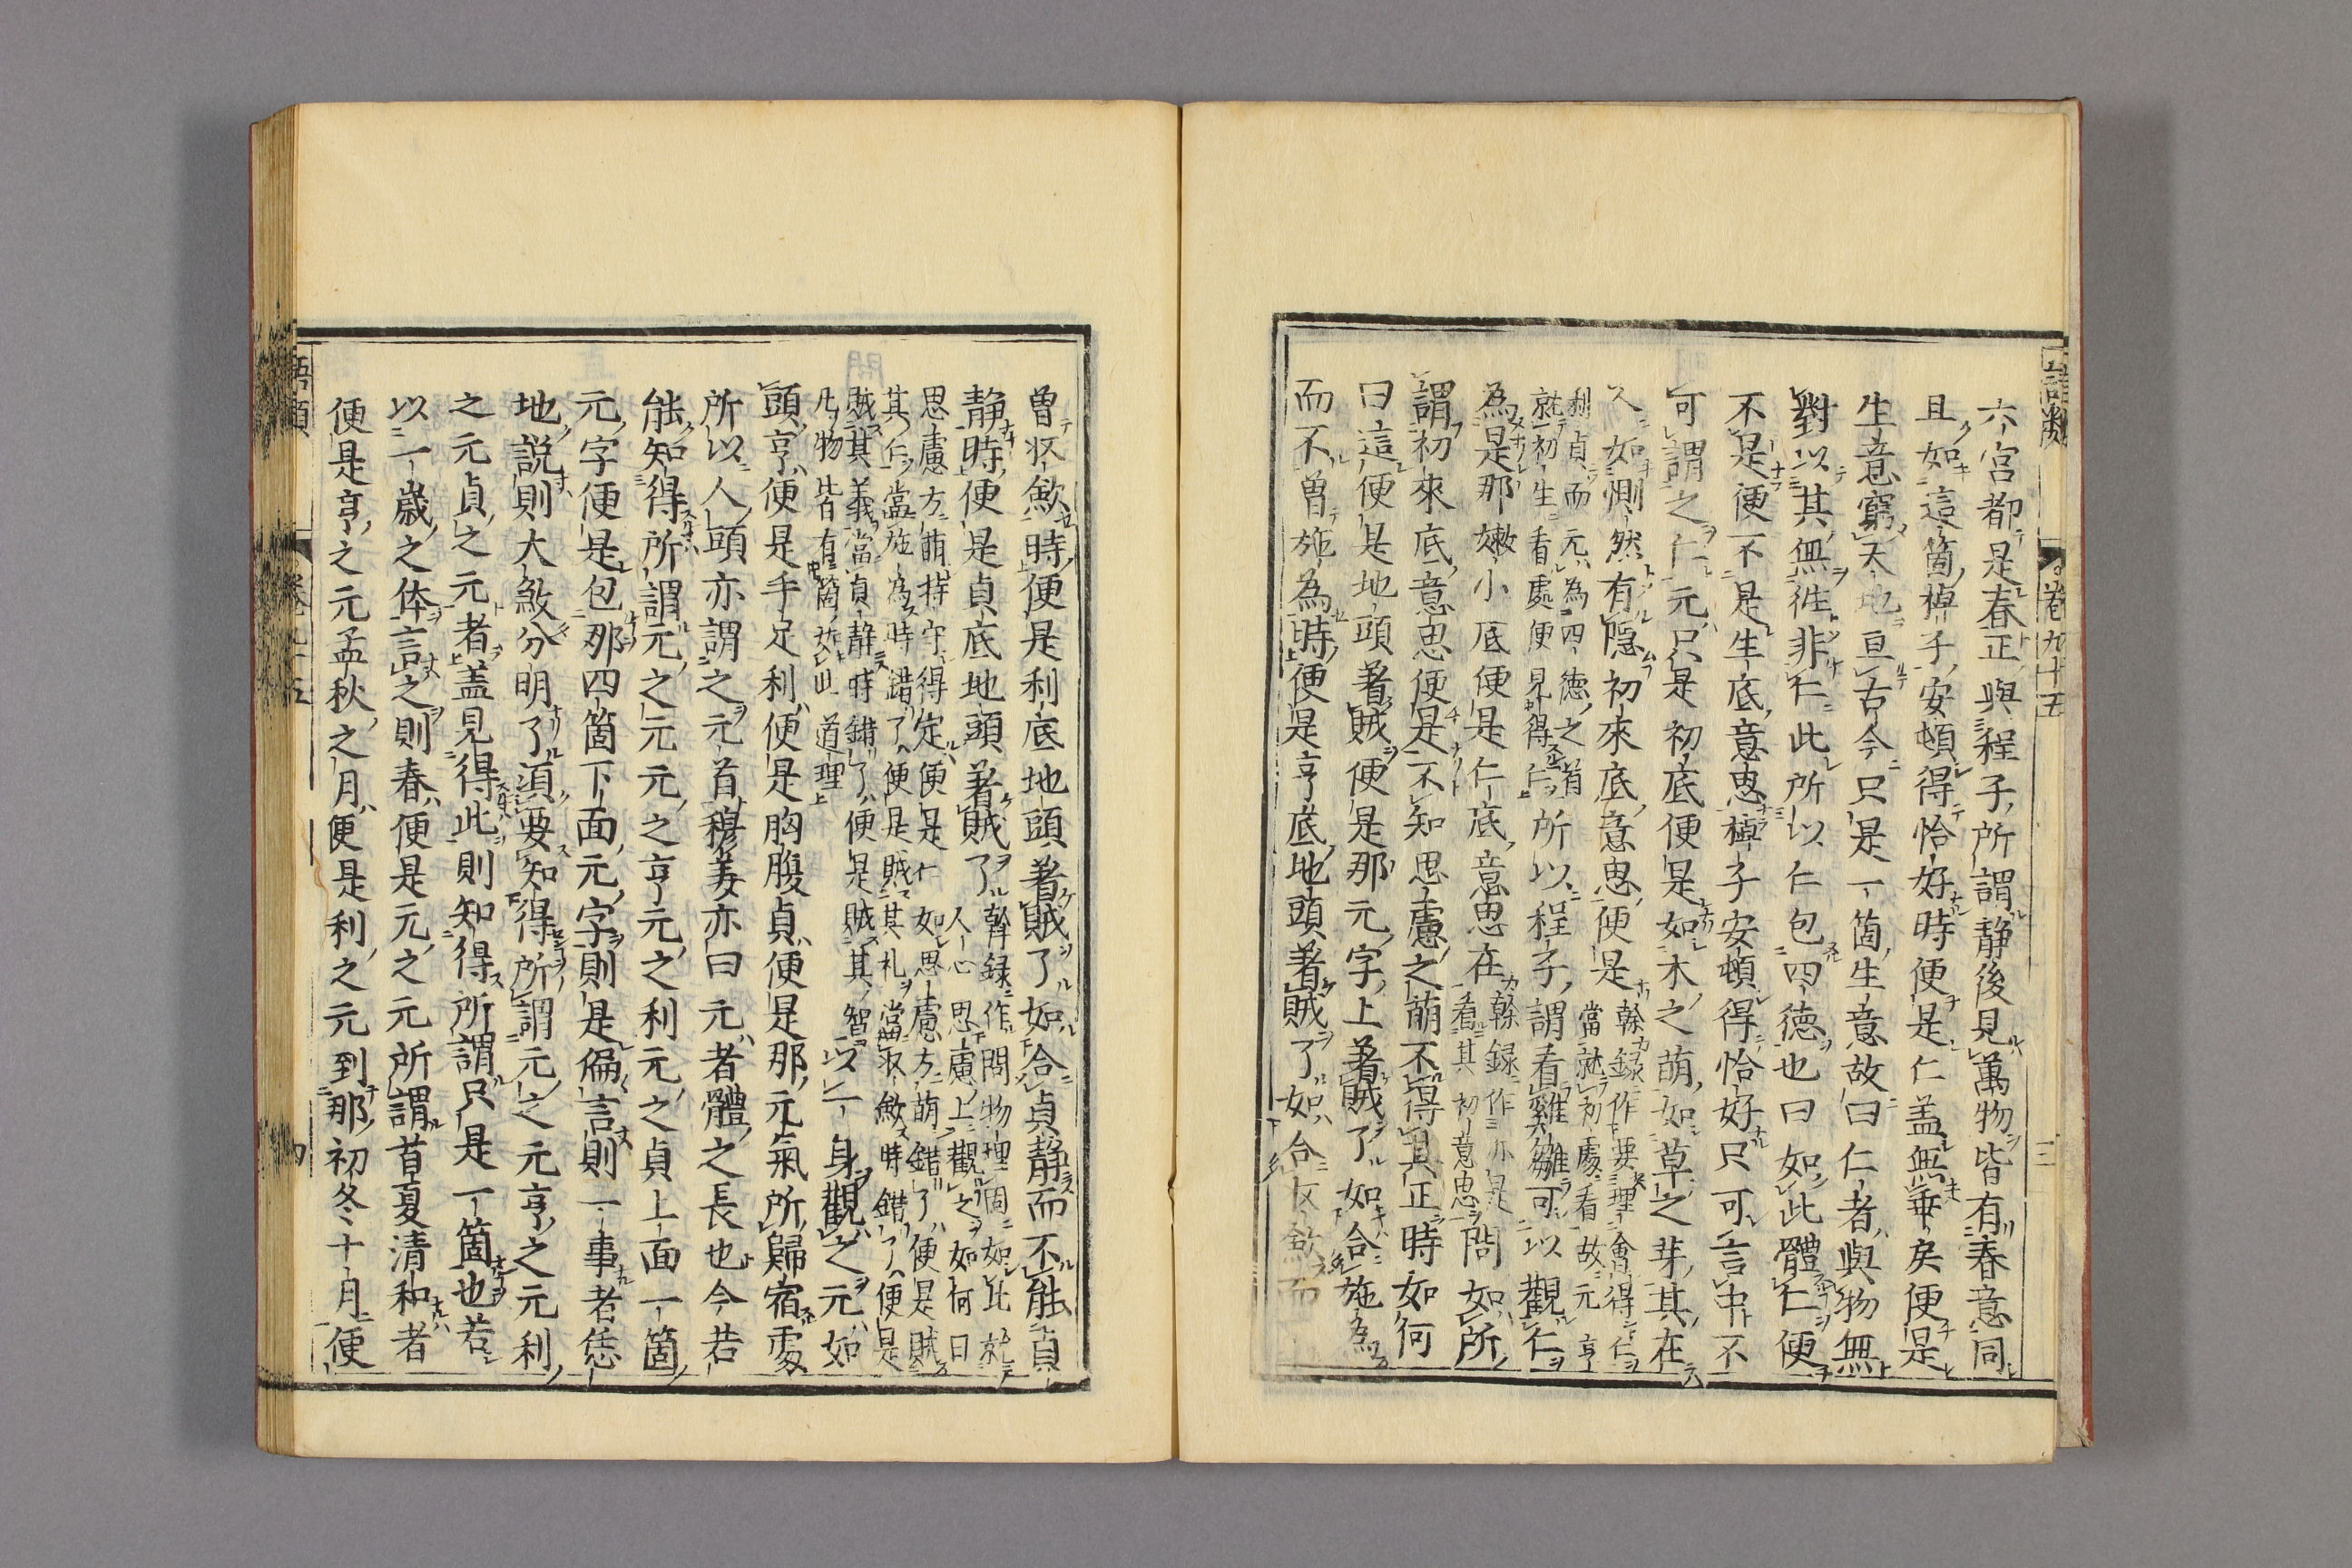 語類 卷九十五 三
六宮都是春正與程子所謂静後見萬物皆有春意同
且如這箇棹子安頓得恰好時便是仁盖無乖戾便是
生意窮天地亘古今只是一箇生意故曰仁者與物無
對以其無徃非仁此所以仁包四徳也曰如此體仁便
不是便不是生底意思棹子安頓得恰好只可言中不
可謂之仁元只是初底便是如木之萌如草之芽其在
人如惻然有隠初來底意思便是
榦録作要理會得仁當就初處看故元亨
利貞而元為四徳之首
就初生看處便見得仁
所以程子謂看雞雛可以觀仁
為是那嫩小底便是仁底意思在
榦録作亦是看其初意思
問如所
謂初來底意思便是不知思慮之萌不得其正時如何
曰這便是地頭著賊便是那元字上著賊了如合施為
而不曾施為時便是亨底地頭著賊了如合收斂而不
曾収斂時便是利底地頭著賊了如合貞静而不能貞
静時便是貞底地頭著賊了
榦録作問物理固如此就
人心思慮上觀之如何曰
思慮方萌持守得定便是仁如思慮方萌錯了便是賊
其仁當施為時錯了便是賊其礼當収斂時錯了便是
賊其義當貞静時錯了便是賊其智
凡物皆有箇如此道理
以一身觀之元如
頭亨便是手足利便是胸腹貞便是那元氣所歸宿處
所以人頭亦謂之元首穆姜亦曰元者體之長也今若
能知得所謂元之元元之亨元之利元之貞上面一箇
元字便是包那四箇下面元字則是偏言則一事者恁
地説則大煞分明了須要知得所謂元之元亨之元利
之元貞之元者盖見得此則知得所謂只是一箇也若
以一歳之体言之則春便是元之元所謂首夏清和者
便是亨之元孟秋之月便是利之元到那初冬十月便
語類 卷九十五 四